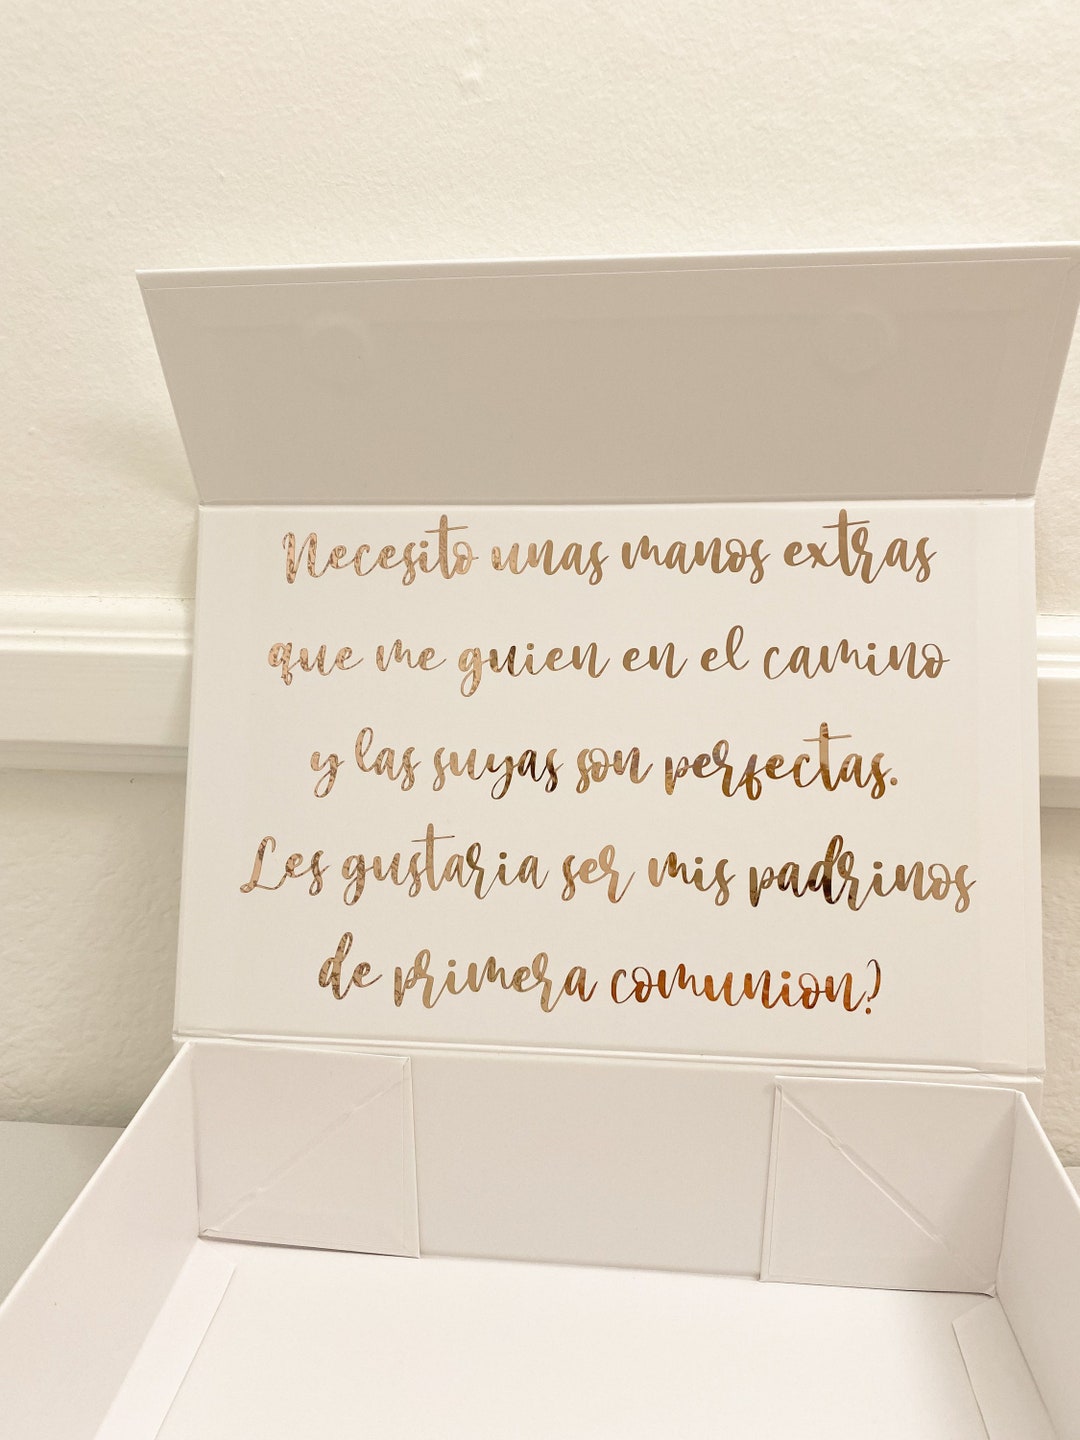 Necesito unas manos extras
que me guien en el camino
y las suyas son perfectas.
Les gustaria ser mis padrinos
de primera comunion?